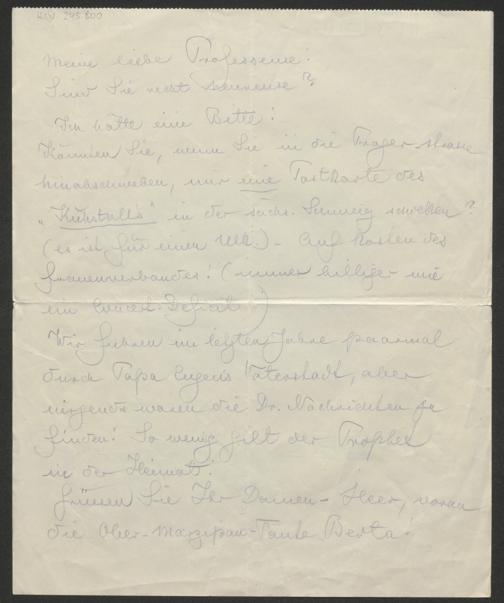 HIN 243.800
Meine liebe Professerne!
Sind Sie recht
Ich hätte eine Bitte!
Könnten Sie, wenn Sie in die Pragerstrasse
hinabschweben, mir eine Postkarte des
„Kuhstalls" in der sächs. Schweiz schicken?
(es ist für einen Ulk.) - Auf Kosten des
Frauenverbandes! (immer billiger wie
ein Concert-Deficit!)
Wir fuhren im letzten Jahre paarmal
durch Papa Eugens Vaterstadt, aber
nirgends waren die Dr. Nachrichten zu
finden! So wenig gilt der Prophet
in der Heimat!
Grüssen Sie Ihr Damen-Heer, voran
die Ober-Marzipan-Tante Berta!